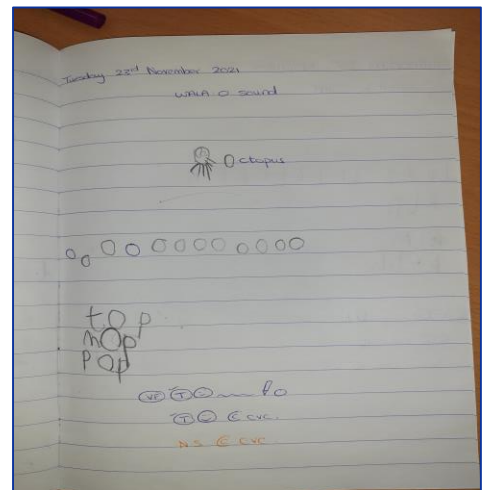 Tuesday 23rd November 2021
WALA O sound
Octopus
o o O O O O O O O O O O
top
mop
pop
VF T C
T C C CVC.
N.S C CVC